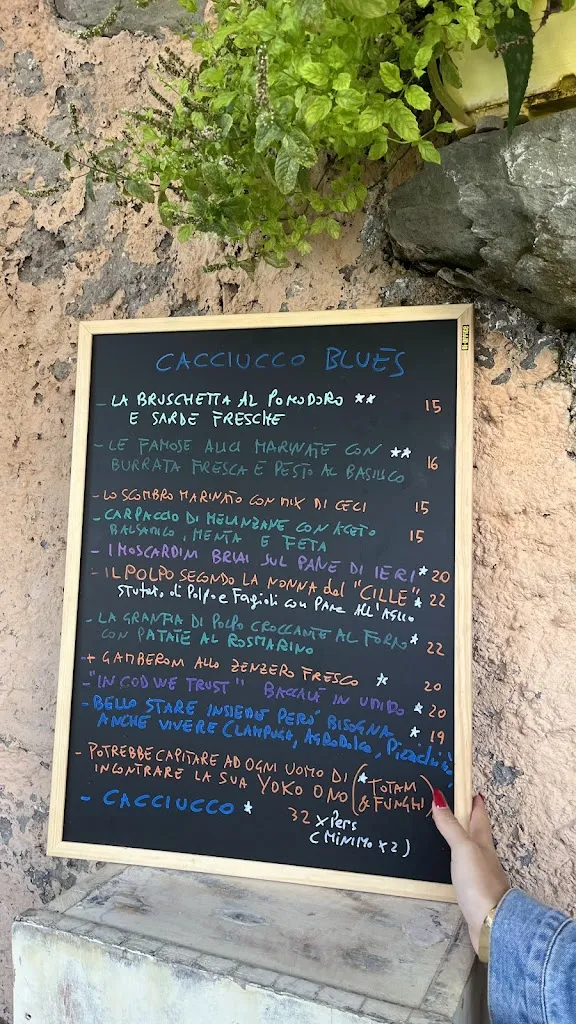 CACCIUCCO BLUES
- LA BRUSCHETTA AL POMODORO ** 15
E SARDE FRESCHE
- LE FAMOSE ALICI MARINATE CON ** 16
BURRATA FRESCA E PESTO AL BASILICO
- LO SGOMBRO MARINATO CON MIX DI CECI 15
- CARPACCIO DI MELANZANE CON ACETO 15
BALSAMICO, MENTA E FETA
- I MOSCARDINI BRIAI SUL PANE DI IERI * 20
- IL POLPO SECONDO LA NONNA del "CILLE" * 22
Stufato di Polpo e Fagioli con Pane All'Aglio
- LA GRANFIA DI POLPO CROCCANTE AL FORNO * 22
CON PATATE AL ROSMARINO
+ GAMBERONI ALLO ZENZERO FRESCO * 20
- "IN COD WE TRUST" BACCALÀ IN UMIDO * 20
- BELLO STARE INSIEME PERÒ BISOGNA * 19
ANCHE VIVERE (LAMPUGA, AGRODOLCE,
- POTREBBE CAPITARE AD OGNI UOMO DI
INCONTRARE LA SUA YOKO ONO (* TOTANI
& FUNGHI)
- CACCIUCCO * 32 x Pers
(MINIMO x 2)